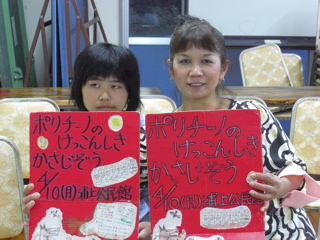 ポリチーノの
けっこんしき
かさじぞう
4/10(月)浦上公民館
ポリチーノの
けっこんしき
かさじぞう
4/10(月)浦上公民館